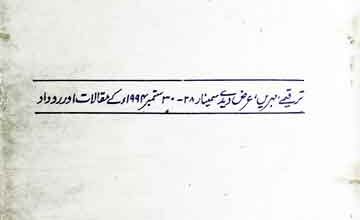 ترقیمے، مہریں، عرض دیدے سمینار ۲۸-۳۰ ستمبر ۱۹۹۴ء کے مقالات اور روداد